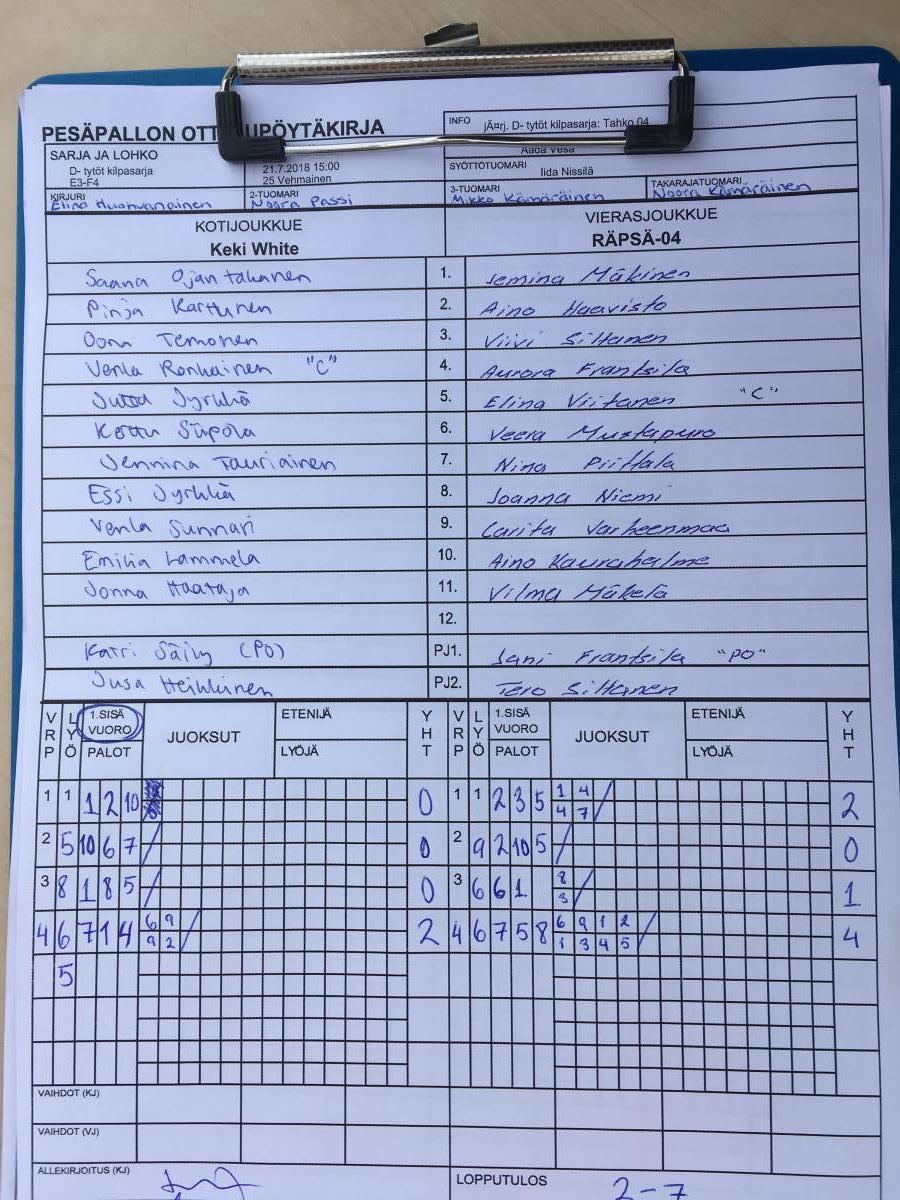 PESÄPALLON OTT UPÖYTÄKIRJA
INFO jÄ¤rj. D- tytöt kilpasarja: Tahko 04
SARJA JA LOHKO
D- tytöt kilpasarja
E3-F4
21.7.2018 15:00
25 Vehmainen
Aada Vesa
SYÖTTÖTUOMARI
Iida Nissilä
KIRJURI
Elina
2-TUOMARI
Noora Passi
3-TUOMARI
Mikko Kämäräinen
TAKARAJATUOMARI
Noora Kämäräinen
KOTIJOUKKUE
Keki White
VIERASJOUKKUE
RÄPSÄ-04
Saana Ojantakanen 1. Jemina Mäkinen
Pinja Karttunen 2. Aino Haavisto
Oona Temonen 3. Viivi Siltanen
Venla Ronkainen "C" 4. Aurora Frantsila
Jutta Jyrkkä 5. Elina Virtanen "C"
Kerttu Siipola 6. Veera Mustapuro
Jemmina Tauriainen 7. Nina Piittala
Essi Jyrkkä 8. Joanna Niemi
Venla Sunnari 9. Carita Varheenmaa
Emilia Lammela 10. Aino Kauraholme
Jonna Haataja 11. Vilma Mäkelä
12.
Katri Säily (PO) PJ1. Jani Frantsila "PO"
Jusa Heikkinen PJ2. Tero Siltanen
VRP LYÖ 1.SISÄ VUORO PALOT JUOKSUT ETENIJÄ LYÖJÄ YHT VRP LYÖ 1.SISÄ VUORO PALOT JUOKSUT ETENIJÄ LYÖJÄ YHT
1 1 1 2 10 0 1 1 2 3 5 1 4 / 2
4 7
2 5 10 6 7 / 0 2 9 2 10 5 / 0
3 8 1 8 5 / 0 3 6 6 1 8 / 1
3
4 6 7 1 4 6 9 / 2 4 6 7 5 8 6 9 1 2 / 4
9 2 1 3 4 5
5
VAIHDOT (KJ)
VAIHDOT (VJ)
ALLEKIRJOITUS (KJ) LOPPUTULOS 2-7